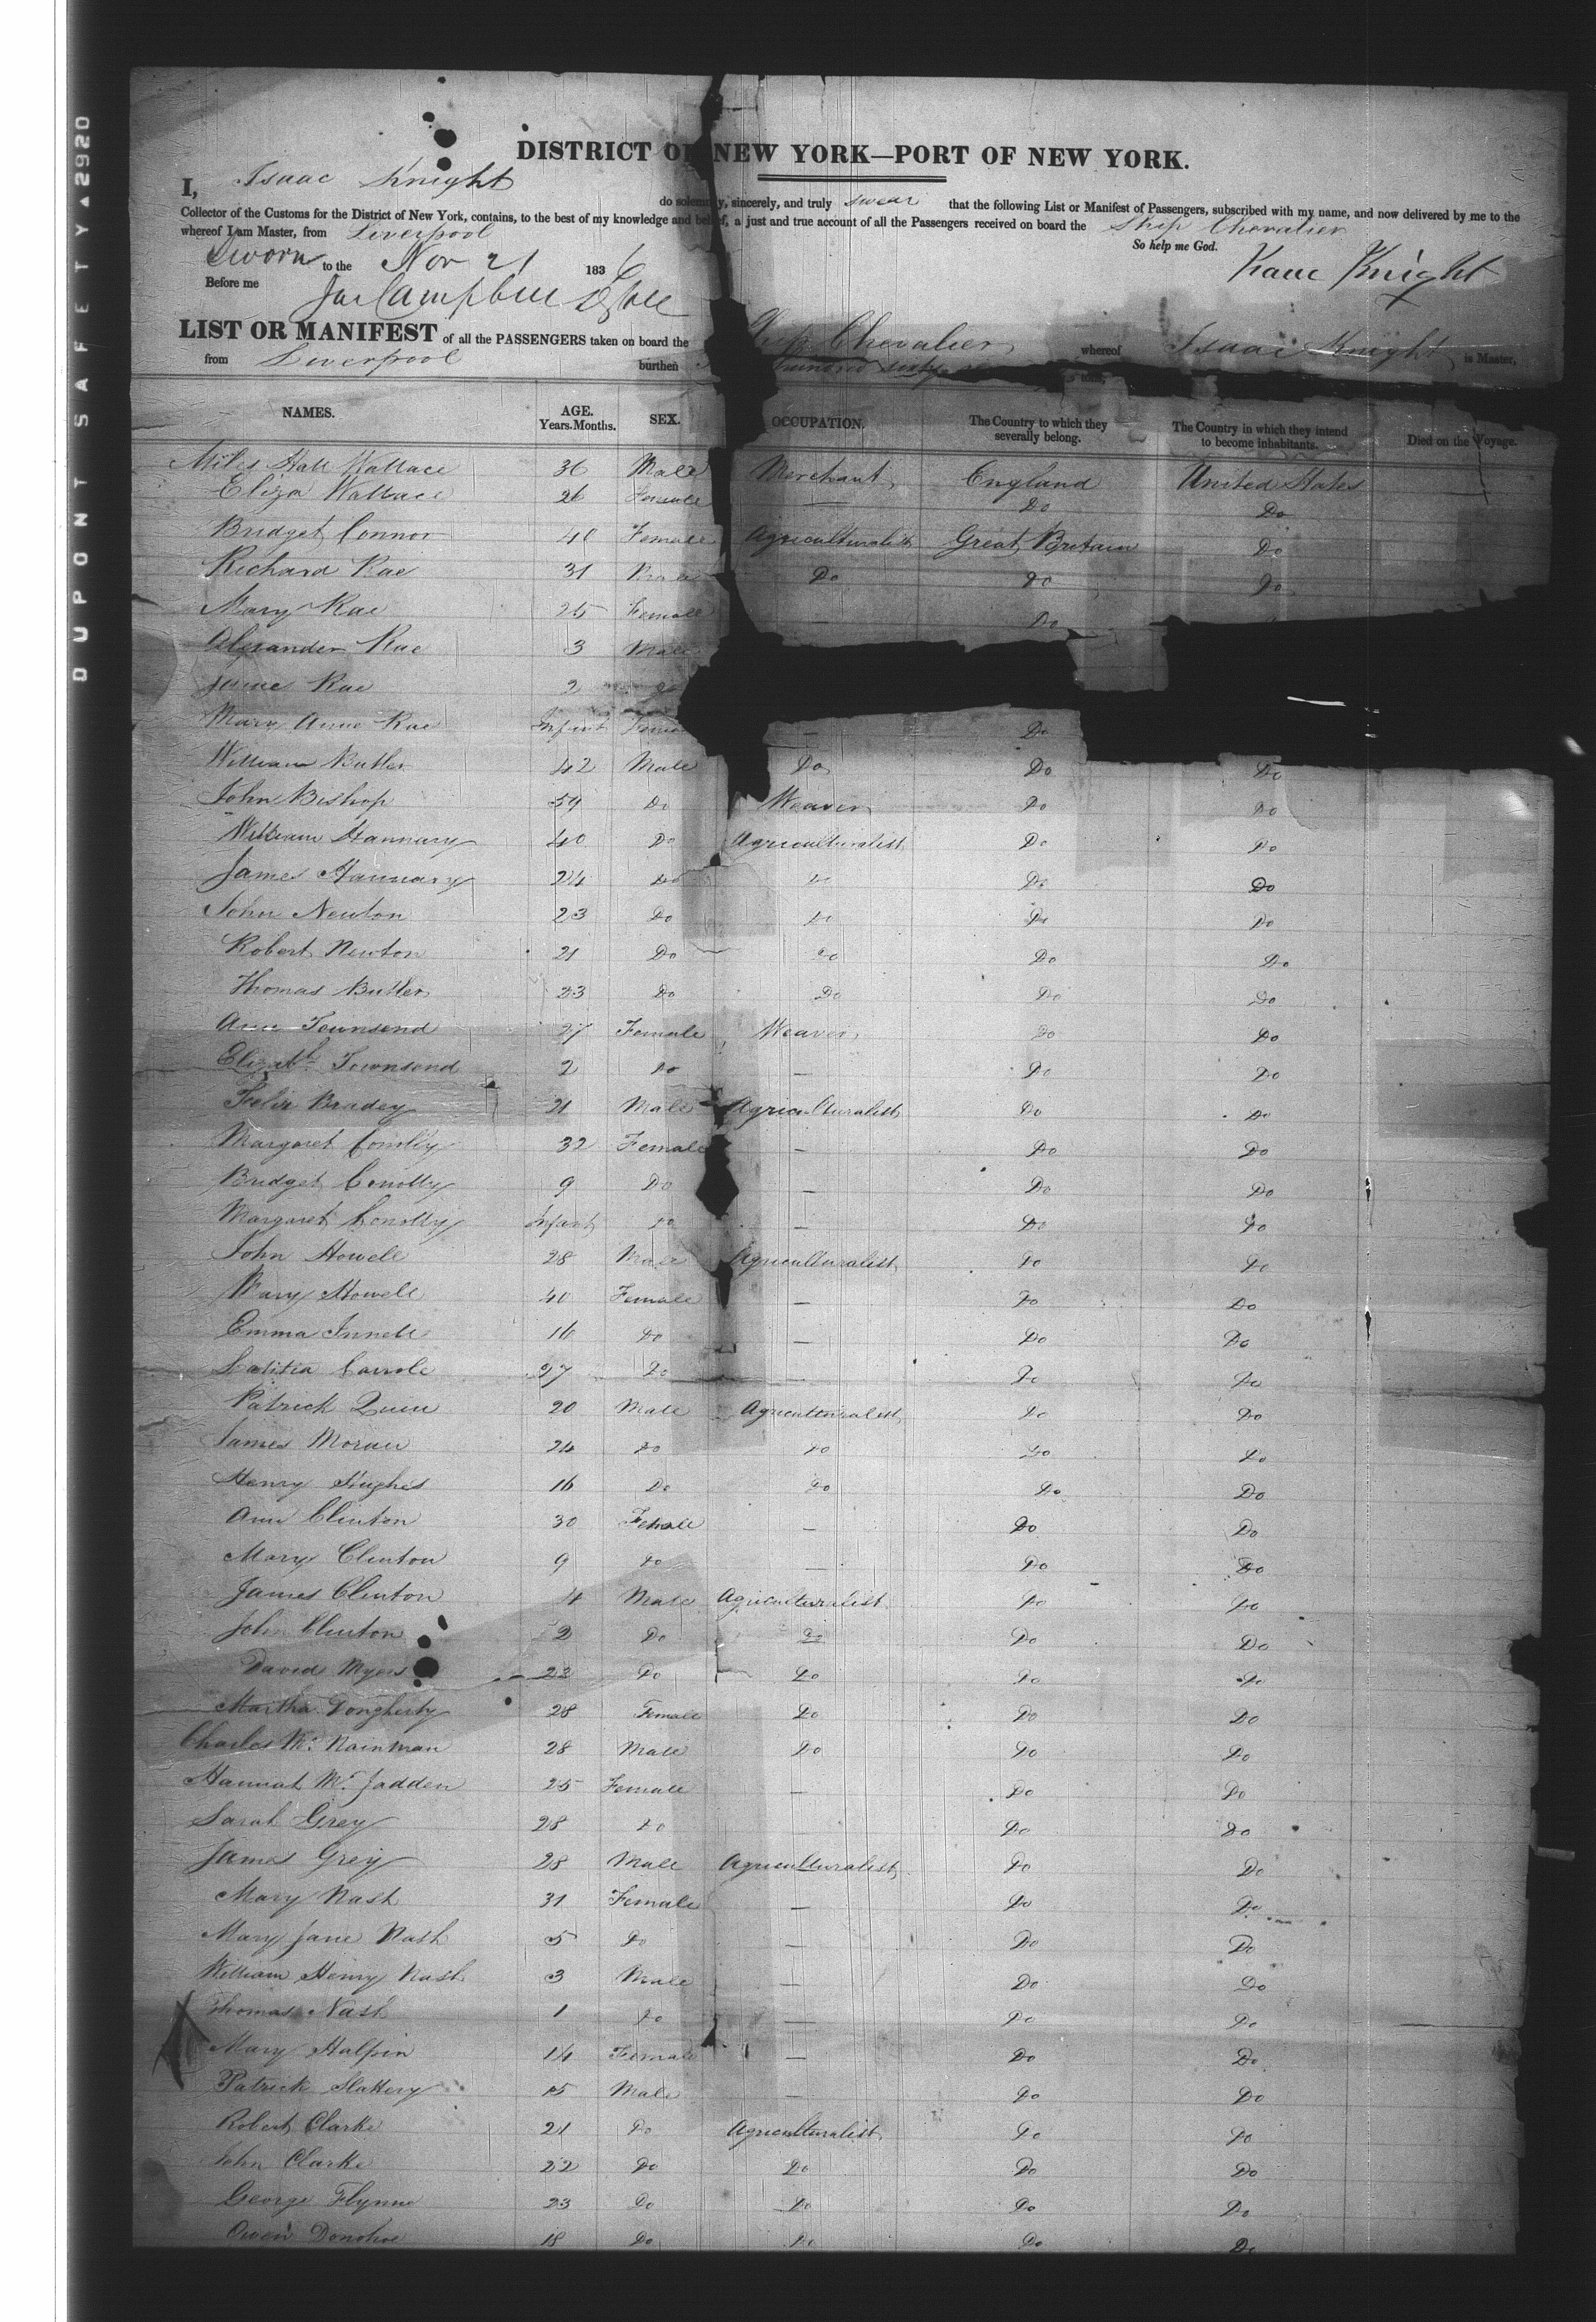 DUPONT SAFETY ▲ 2920
DISTRICT OF NEW YORK—PORT OF NEW YORK.
I, Isaac Knight do solemnly, sincerely, and truly swear that the following List or Manifest of Passengers, subscribed with my name, and now delivered by me to the
Collector of the Customs for the District of New York, contains, to the best of my knowledge and belief, a just and true account of all the Passengers received on board the Ship Chevalier
whereof I am Master, from Liverpool So help me God.
Sworn to the Nov 21 1836 Isaac Knight
Before me Jas Campbell
LIST OR MANIFEST of all the PASSENGERS taken on board the Ship Chevalier whereof Isaac Knight is Master,
from Liverpool burthen hundred sixty tons,
NAMES. AGE. Years. Months. SEX. OCCUPATION. The Country to which they severally belong. The Country in which they intend to become inhabitants. Died on the Voyage.
Miles Hall Wallace 36 Male Merchant England United States
Eliza Wallace 26 Female — Do Do
Bridget Connor 40 Female Agriculturalist Great Britain Do
Richard Rae 31 Male Do Do Do
Mary Rae 25 Female — Do
Alexander Rae 3 Male
Rae 2 Do
Mary Anne Rae Infant Female — Do
William Butler 42 Male Do Do Do
John Bishop 59 Do Weaver Do Do
William Hannary 40 Do Agriculturalist Do Do
James Hannary 24 Do Do Do Do
John Newton 23 Do Do Do Do
Robert Newton 21 Do Do Do Do
Thomas Butler 23 Do Do Do Do
Ann Townsend 27 Female Weaver Do Do
Elizabth Townsend 2 Do — Do Do
Felix Bradey 21 Male Agriculturalist Do Do
Margaret Conolly 32 Female — Do Do
Bridget Conolly 9 Do — Do Do
Margaret Conolly Infant Do — Do Do
John Howell 28 Male Agriculturalist Do Do
Mary Howell 40 Female — Do Do
Emma 16 Do — Do Do
Letitia Carrole 27 Do — Do Do
Patrick Quin 20 Male Agriculturalist Do Do
James Moran 24 Do Do Do Do
Henry Hughes 16 Do Do Do Do
Ann Clinton 30 Female — Do Do
Mary Clinton 9 Do — Do Do
James Clinton 4 Male Agriculturalist Do Do
John Clinton 2 Do Do Do Do
David Myers 22 Do Do Do Do
Martha Dongherty 28 Female Do Do Do
Charles Mc 28 Male Do Do Do
Hannah Mc Fadden 25 Female — Do Do
Sarah Grey 28 Do Do Do
James Grey 28 Male Agriculturalist Do Do
Mary Nash 31 Female — Do Do
Mary Jane Nash 5 Do — Do Do
William Henry Nash 3 Male — Do Do
Thomas Nash 1 Do — Do Do
Mary Halpin 14 Female — Do Do
Patrick Slattery 15 Male — Do Do
Robert Clarke 21 Do Agriculturalist Do Do
John Clarke 22 Do Do Do Do
George Flynn 23 Do Do Do Do
Owen Donohoe 18 Do Do Do Do